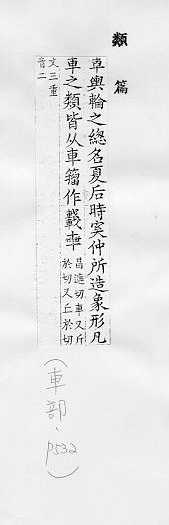 類篇
車輿輪之總名夏后時奚仲所造象形凡
車之類皆从車籀作𨏖車
昌遮切車又斤
於切又丘於切
文三重
音二
(車部、
P532)